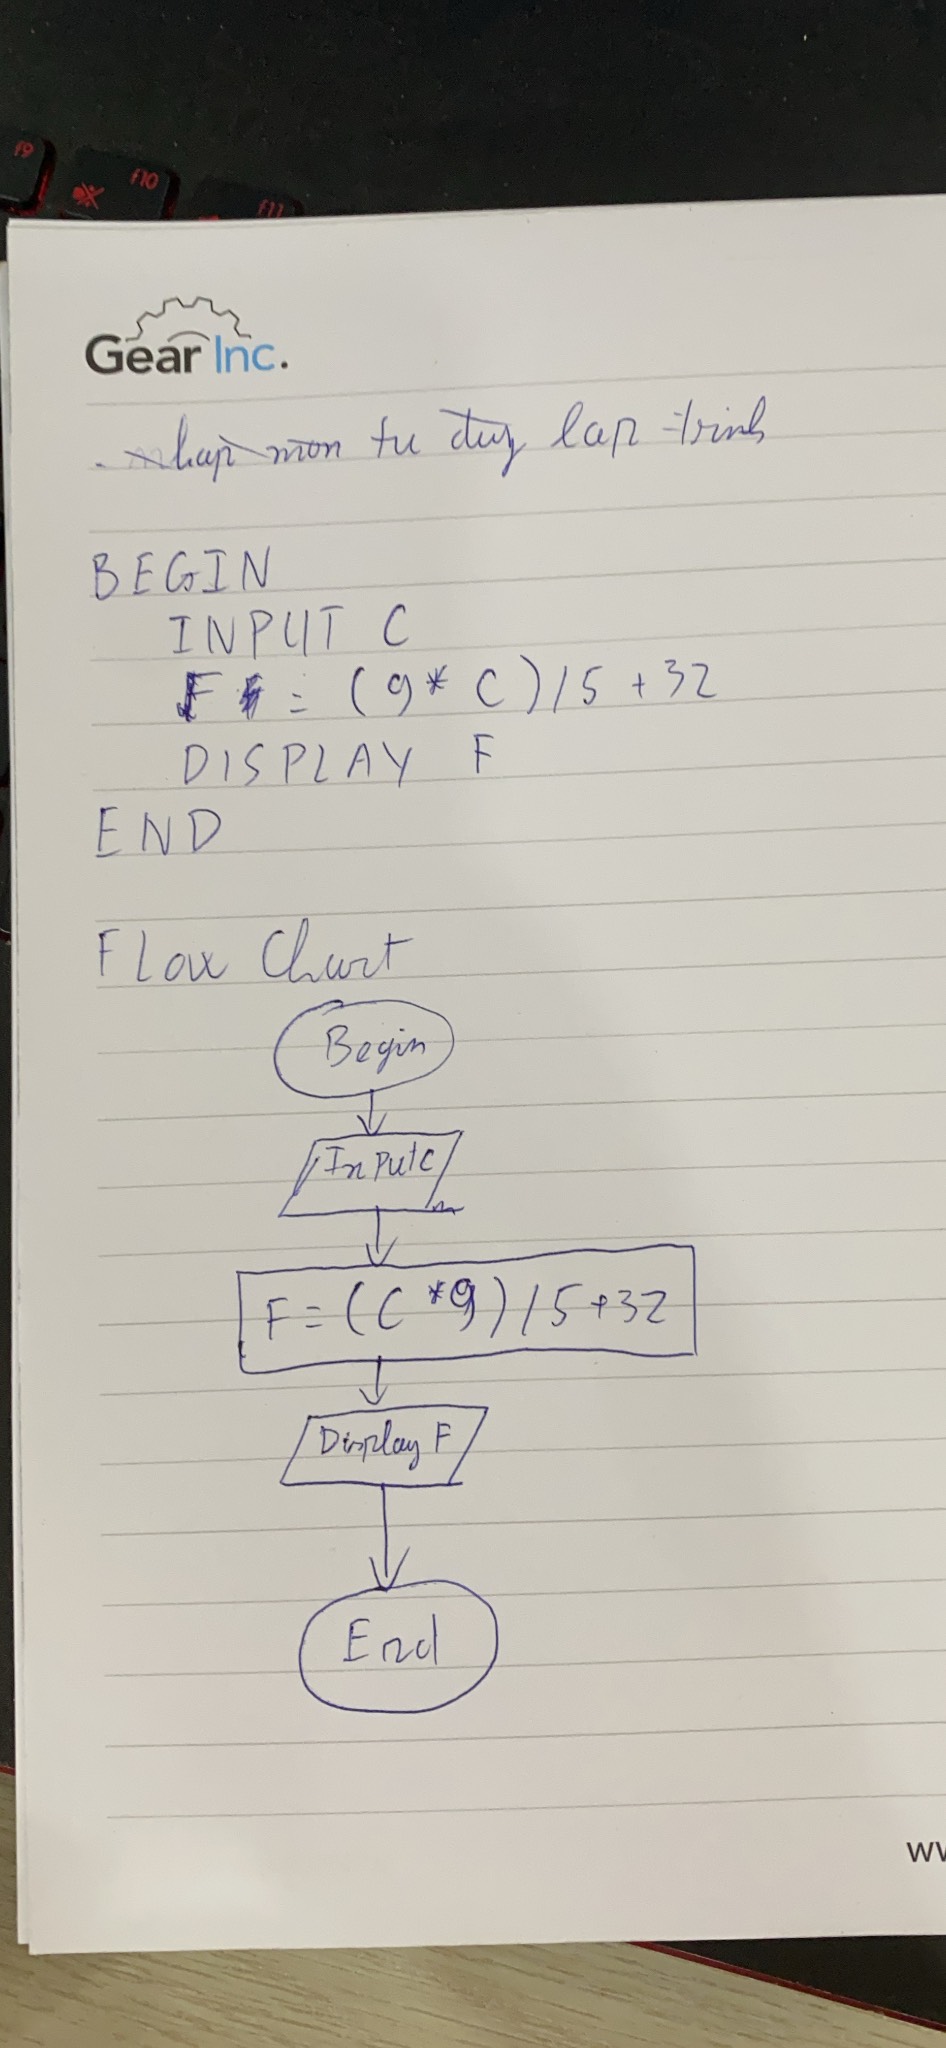 f9
f10
f11
Gear Inc.
. nhap mon tu duy lap trinh
BEGIN
INPUT C
F = (9 * C) / 5 + 32
DISPLAY F
END
Flow Chart
Begin
Input C
F = (C * 9) / 5 + 32
Display F
End